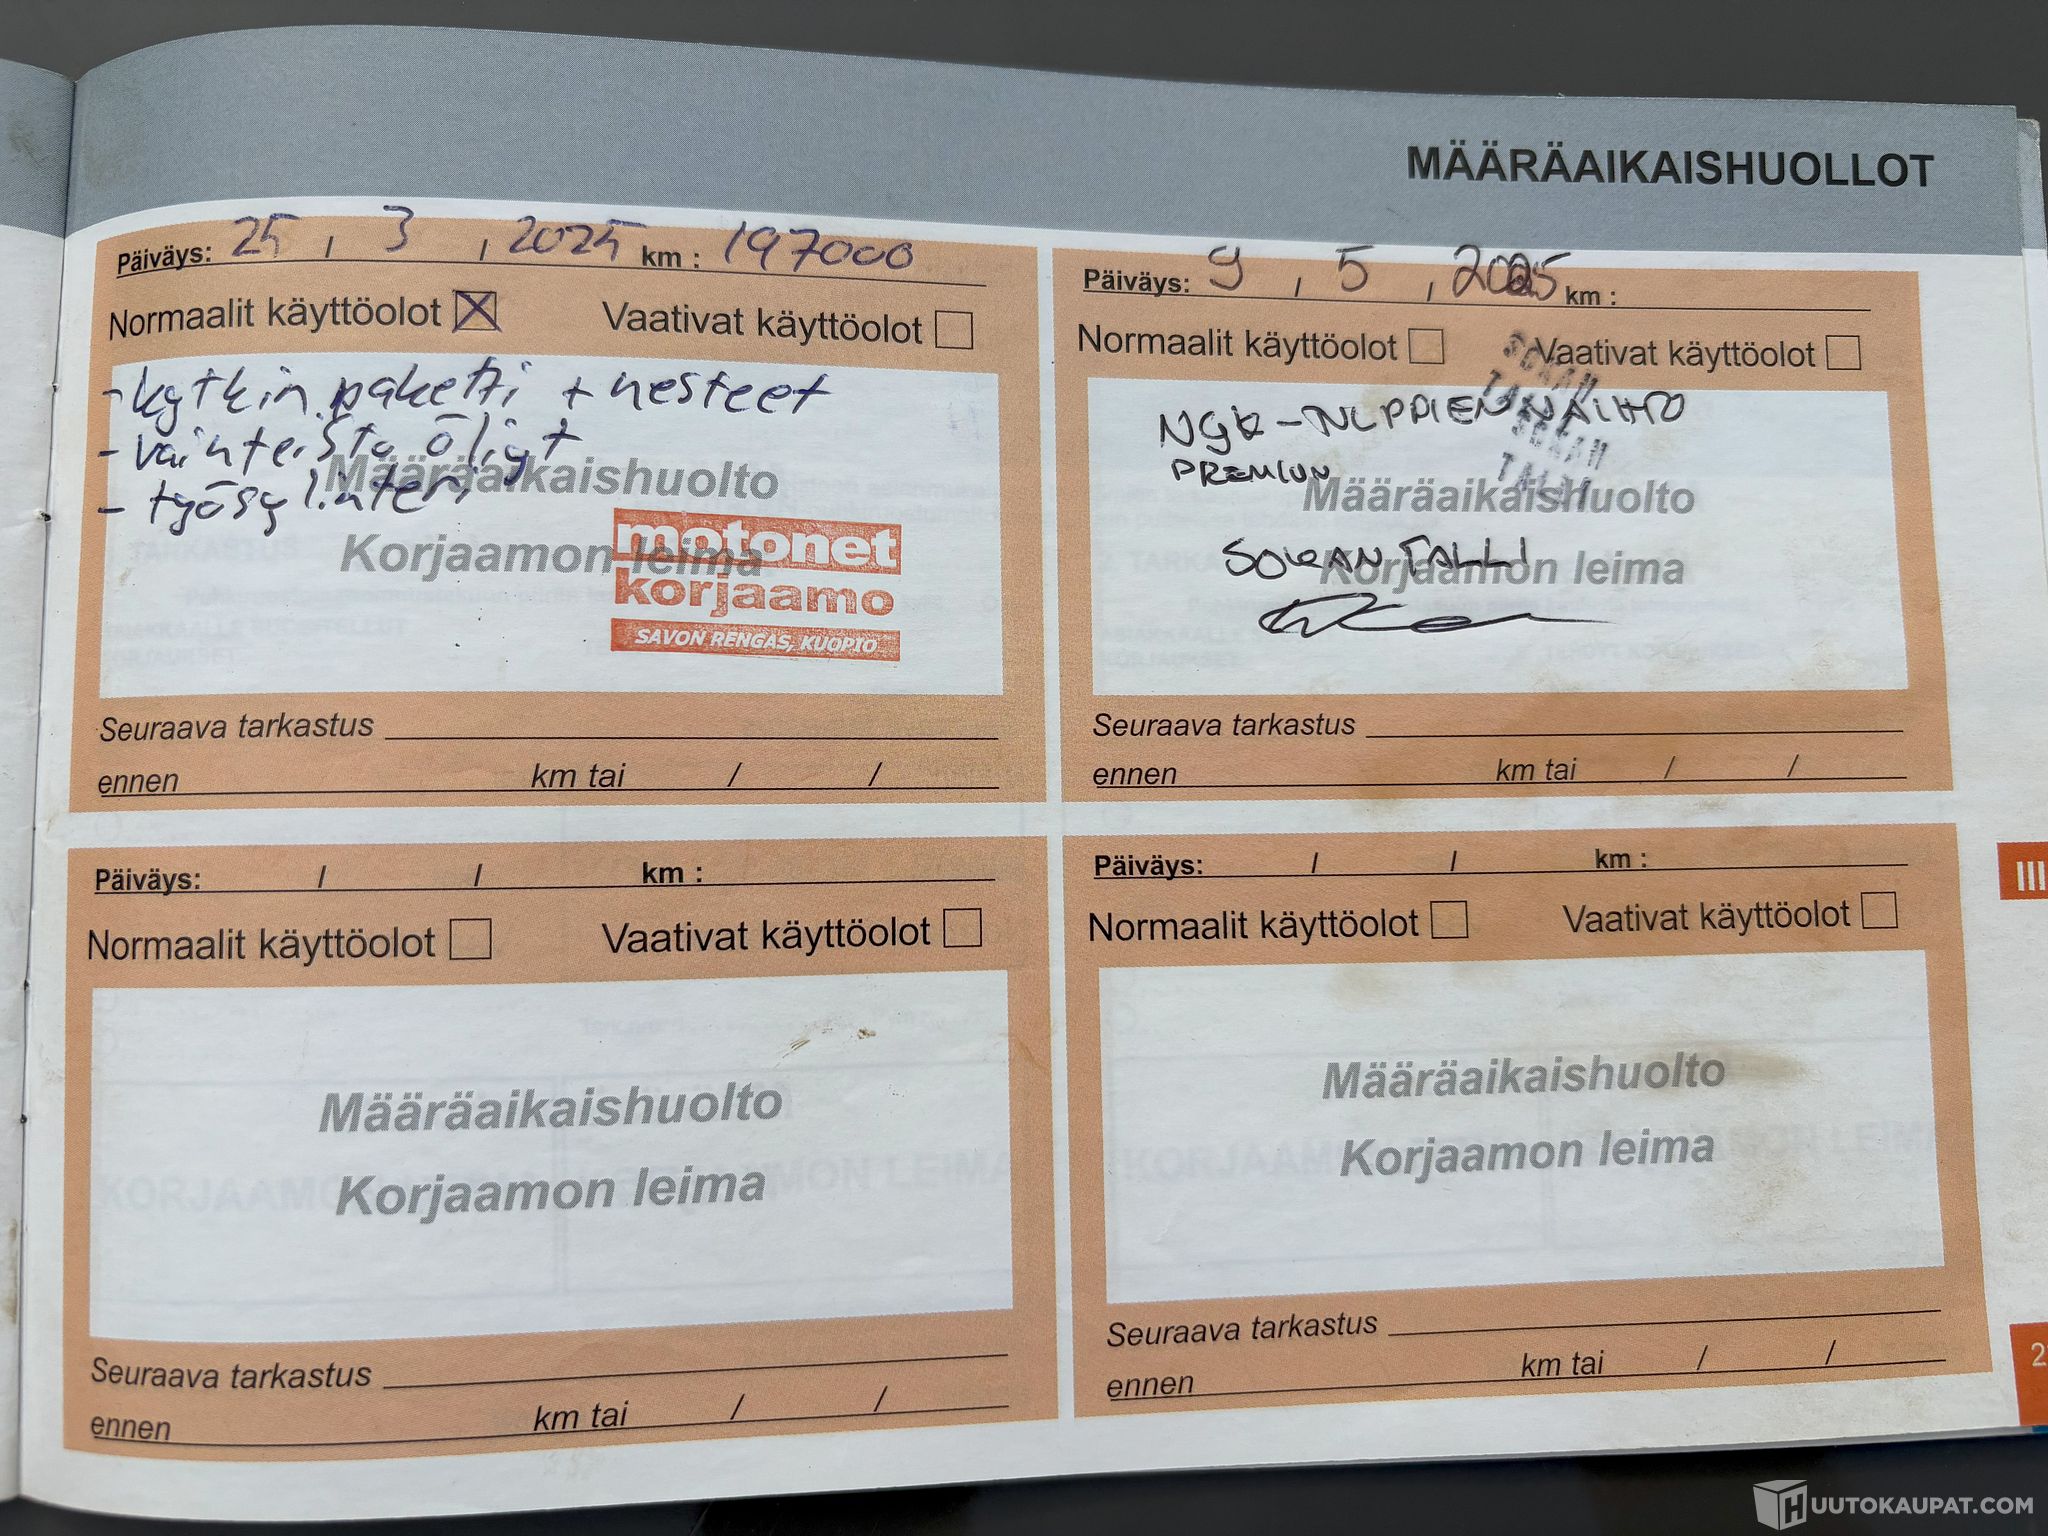 MÄÄRÄAIKAISHUOLLOT
Päiväys: 25 / 3 / 2025 km : 197000
Normaalit käyttöolot Vaativat käyttöolot
- kytkin paketti + nesteet
- vainteisto öljyt
- työsylinteri
Määräaikaishuolto
Korjaamon leima
motonet
korjaamo
SAVON RENGAS, KUOPIO
Seuraava tarkastus
ennen km tai / /
Päiväys: 9 / 5 / 2025 km :
Normaalit käyttöolot Vaativat käyttöolot
SOKAN
TALLI
SOKAN
TALLI
NGK-TULPPIEN VAIHTO
PREMIUM
Määräaikaishuolto
SOKAN TALLI
Korjaamon leima
Seuraava tarkastus
ennen km tai / /
Päiväys: / / km :
Normaalit käyttöolot Vaativat käyttöolot
Määräaikaishuolto
Korjaamon leima
Seuraava tarkastus
ennen km tai / /
Päiväys: / / km :
Normaalit käyttöolot Vaativat käyttöolot
Määräaikaishuolto
Korjaamon leima
Seuraava tarkastus
ennen km tai / /
HUUTOKAUPAT.COM